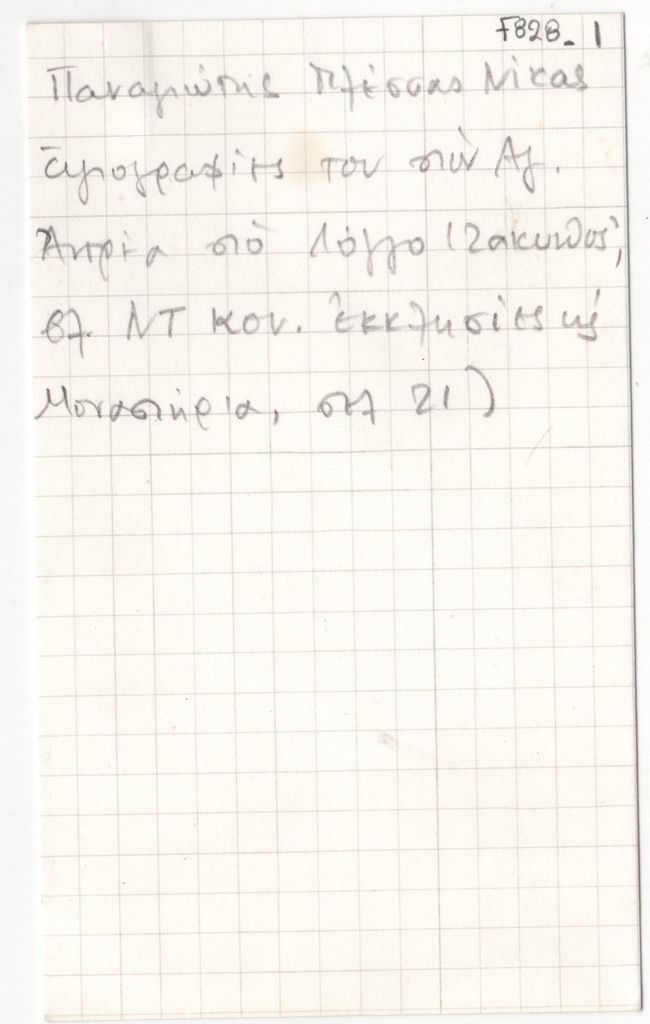 F828_1
Παναγιώτης Πλέσσας Νίκας
ἁγιογραφίες του στὸν Αγ.
Ἀντρέα στὸ Λόγγο (Ζακυνθος,
βλ. ΝΤ Κον. Ἐκκλησίες κι
Μοναστήρια, σελ 21)